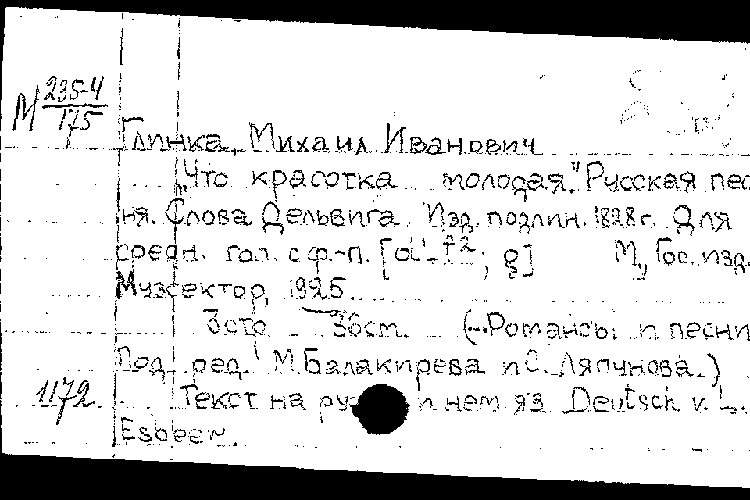 М 235-4
175
Глинка, Михаил Иванович
"Что красотка молодая." Русская пес
ня. Слова Дельвига. Изд. подлин. 1828 г. Для
средн. гол. с ф.-п. [d'-f2; g] М., Гос. изд.
Музсектор, 1925.
3 стр. 36 ст. (...Романсы и песни
Под ред. М. Балакирева и С. Ляпунова.)
1172. Текст на ру и нем яз Deutsch v.